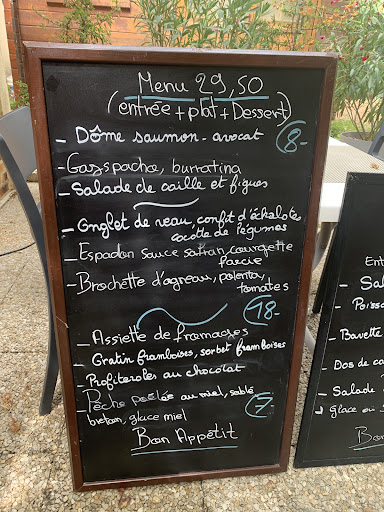 Menu 29,50
(entrée + plat + Dessert)
- Dôme saumon - avocat 8-
- Gazspacho, burratina
- Salade de caille et figues
- Onglet de veau, confit d'échalotes
cocotte de légumes
- Espadon sauce safran, courgette
farcie
- Brochette d'agneau, polenta,
tomates
18-
- Assiette de fromages
- Gratin framboises, sorbet framboises
- Profiteroles au chocolat
- Pêche poêlée au miel, sablé
breton, glace miel 7-
Bon Appétit
Ent
- Sal
- Poisso
- Bavette
- Dos de ca
- Salade
Glace ou
Bon